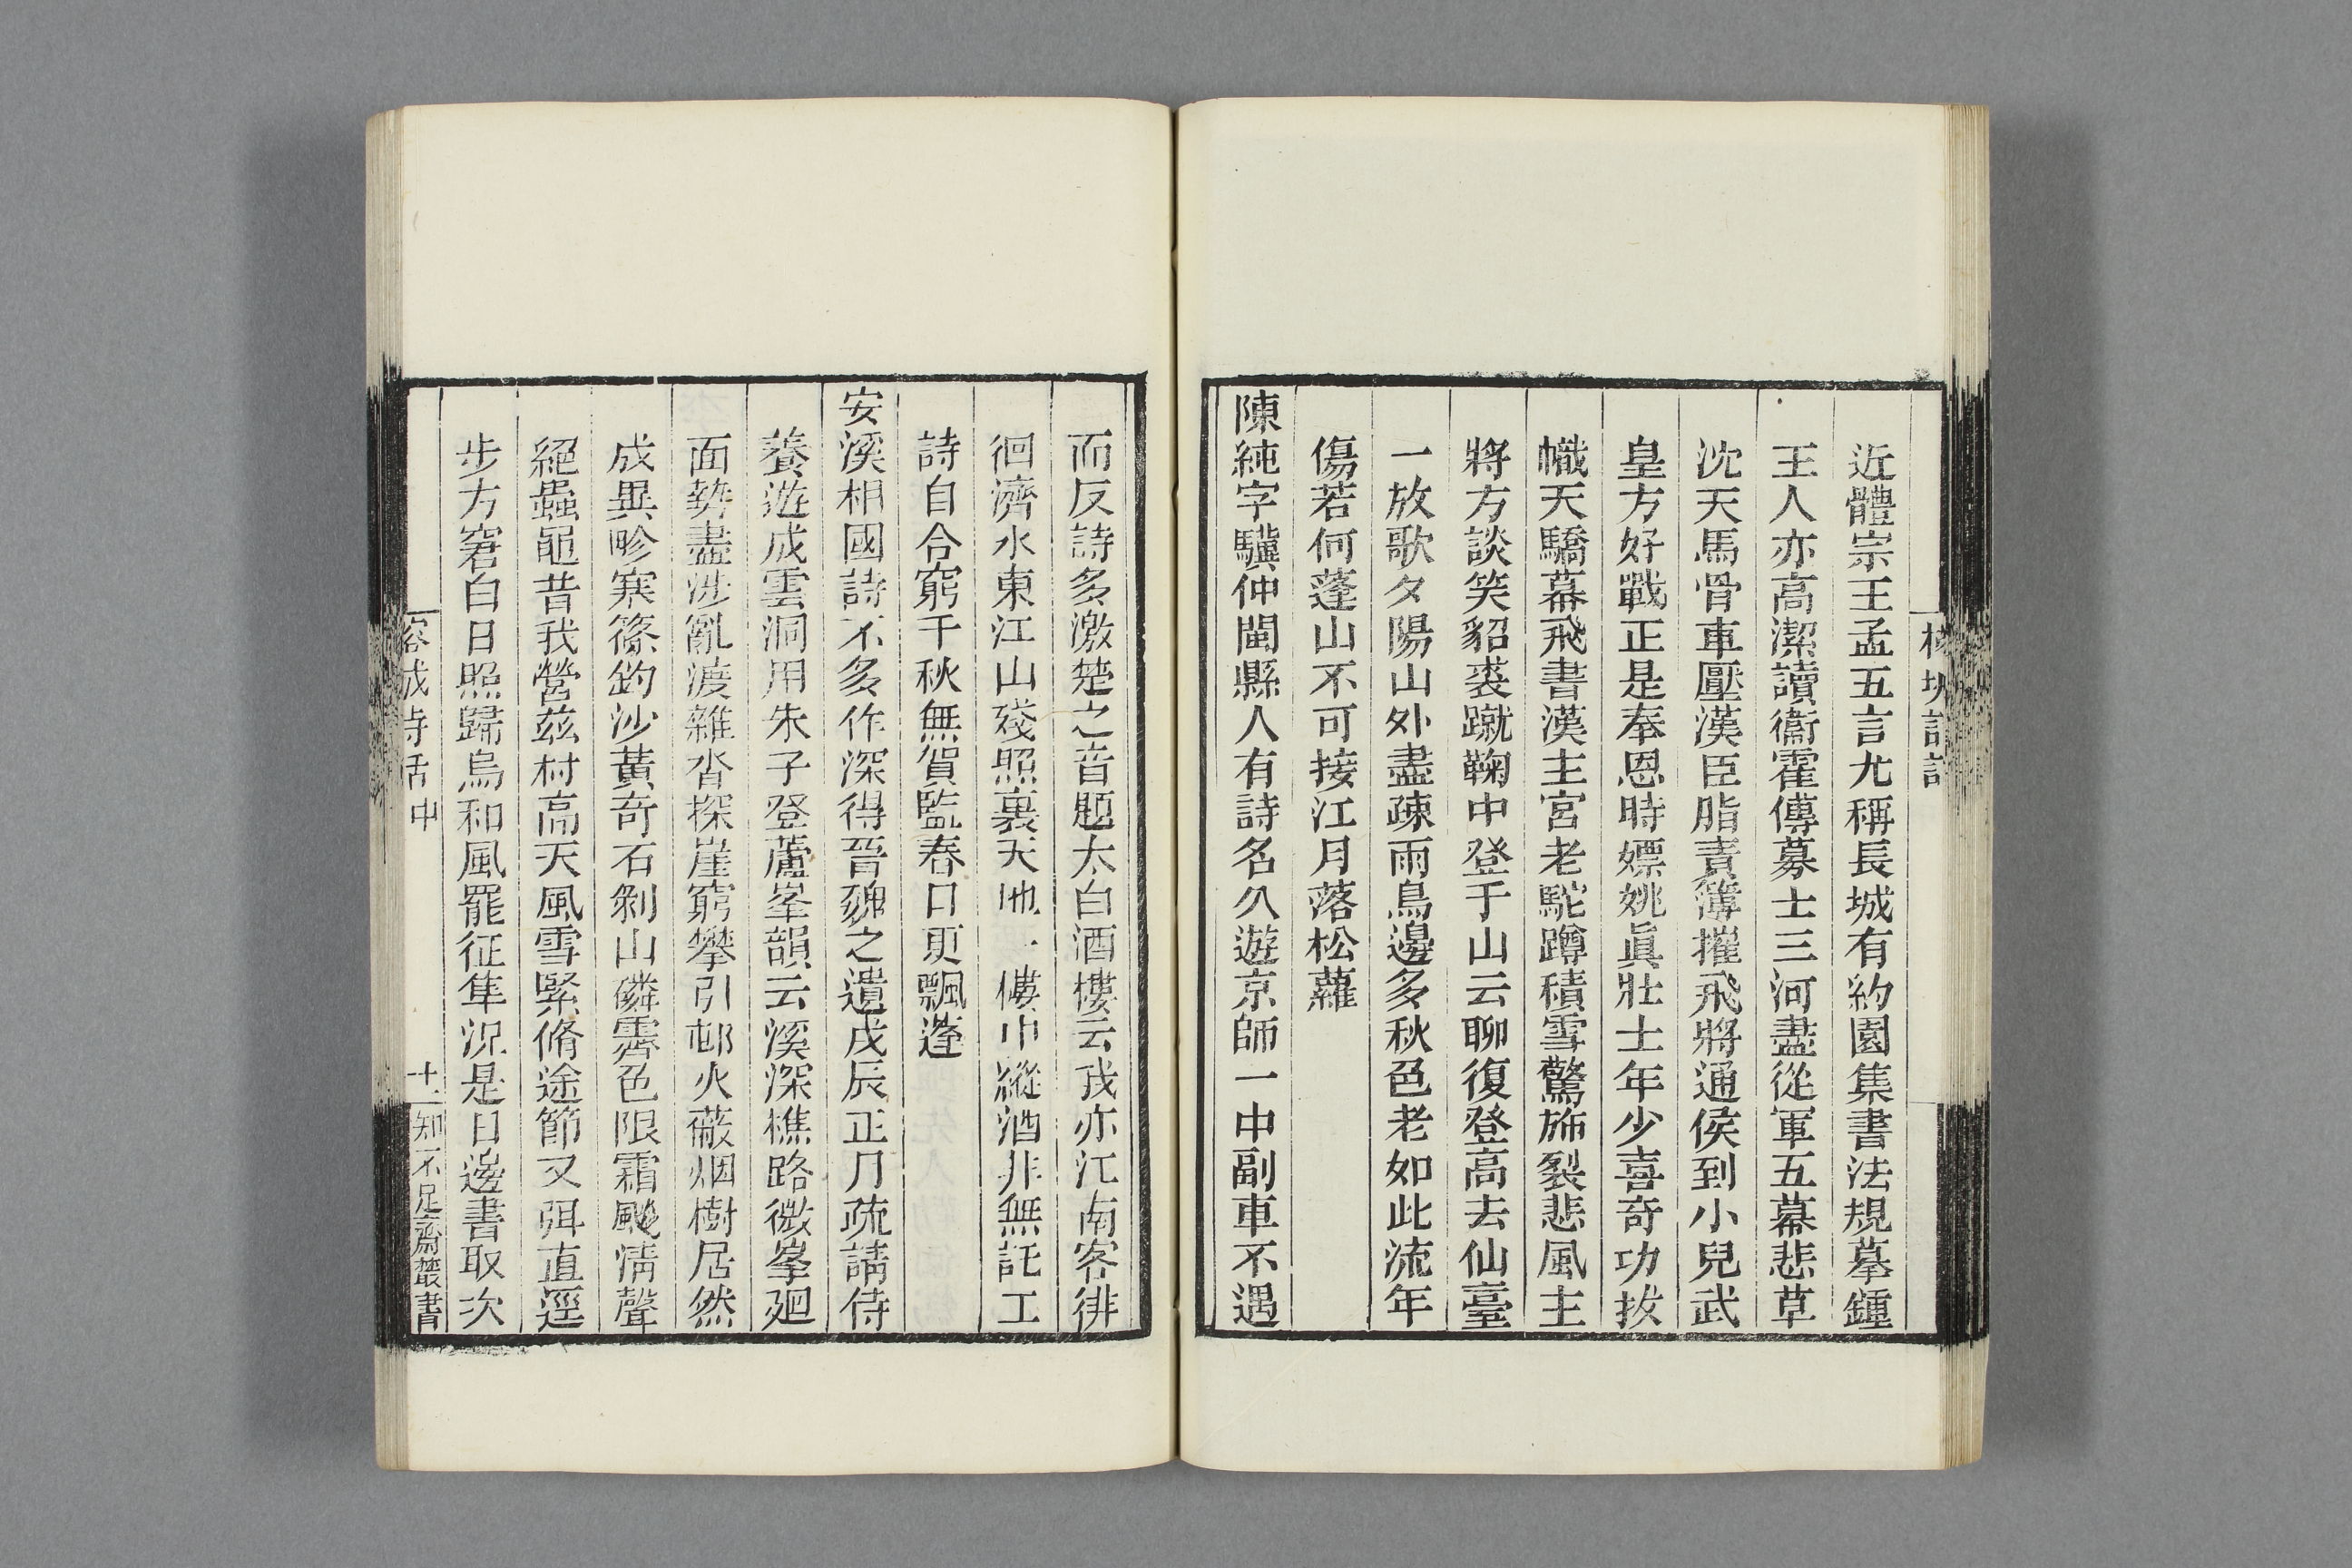 近體宗王孟五言尤稱長城有約園集書法規摹鍾
王人亦高潔讀衞霍傳募士三河盡從軍五幕悲草
沈天馬骨車壓漢臣脂責簿摧飛將通侯到小兒武
皇方好戰正是奉恩時嫖姚眞壯士年少喜奇功拔
幟天驕幕飛書漢主宮老駝蹲積雪驚旆裂悲風主
將方談笑貂裘蹴鞠中登于山云聊復登高去仙臺
一放歌夕陽山外盡疎雨鳥邊多秋色老如此流年
傷若何蓬山不可接江月落松蘿
陳純字驥仲閩縣人有詩名久遊京師一中副車不遇
而反詩多激楚之音題太白酒樓云我亦江南客徘
徊濟水東江山殘照裏天地一樓中縱酒非無託工
詩自合窮千秋無賀監春日更飄蓬
安溪相國詩不多作深得晉魏之遺戊辰正月疏請侍
養遊成雲洞用朱子登蘆峯韻云溪深樵路微峯廻
面勢盡涉亂渡雜沓探崖窮攀引邨火蔽烟樹居然
成異畛寒篠釣沙黃奇石剝山磷霽色限霜颸淸聲
絕蟲黽昔我營茲村高天風雪緊脩途節又弭直逕
步方窘白日照歸烏和風罷征隼況是日邊書取次
榕城詩話中
十一
知不足齋叢書